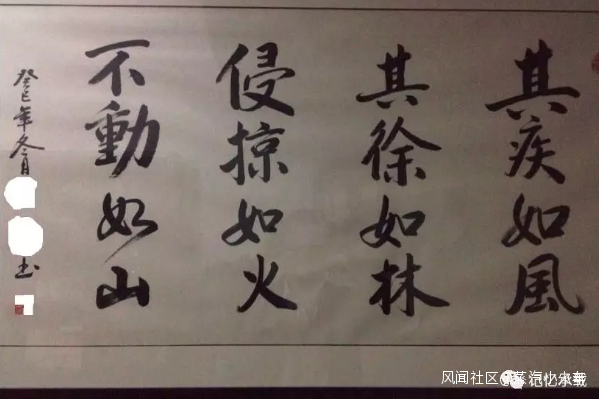 其疾如風
其徐如林
侵掠如火
不動如山
癸巳年冬月
书
风闻社区
记忆承载